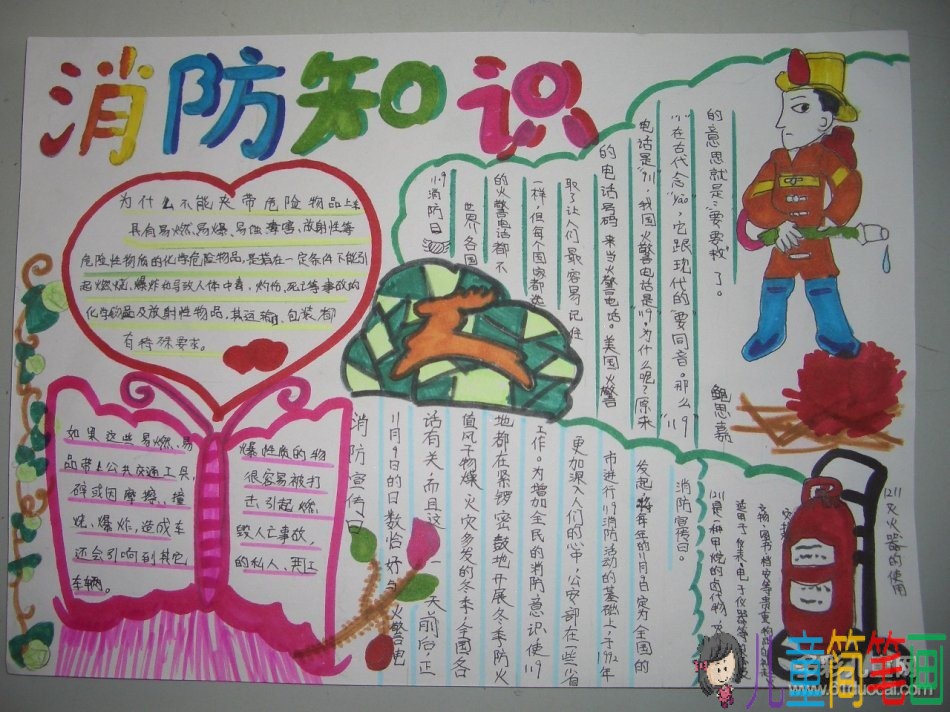 消防知识
为什么不能夹带危险物品上车
具有易燃、易爆、易蚀、毒害、放射性等
危险性物质的化学危险物品，是指在一定条件下能引
起燃烧、爆炸也导致人体中毒、灼伤、死亡等事故的
化学物品及放射性物品，其运输、包装都
有特殊要求。
如果这些易燃、易
爆性质的物
品带上公共交通工具，
很容易被打
碎或因摩擦、撞
击引起燃
烧、爆炸，造成车
毁人亡事故，
还会引响到其它
的私人、
车辆。
119消防日
世界各国
的火警电话都不
一样，但每个国家都选
取了让人们最容易记住
的电话号码 来当火警电话。美国火警
电话是"911"，我国火警电话是"119"。为什么呢？原来
"1"在古代念"yāo"，它跟现代的"要"同音。那么"119"
的意思就是："要要救"了。
鲍思嘉
消防宣传日
11月9日的日数恰好与火警电
话有关，而且这一天前后，正
值风干物燥、火灾多发的冬季，全国各
地都在紧锣密鼓地开展冬季防火
工作。为增加全民的消防意识，使"119"
更加深入人们的心中，公安部在一些省
市进行"119"消防活动的基础上，于1992年
发起将每年的11月9日定为全国的
消防宣传日。
1211灭火器的使用
1211是一种甲烷的卤代物
适用于仪表、电子仪器
文物、图书、档案等贵重物品
儿童简笔画
www.61duocai.com